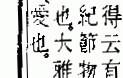 得云有
紀節物
也大雅
愛也